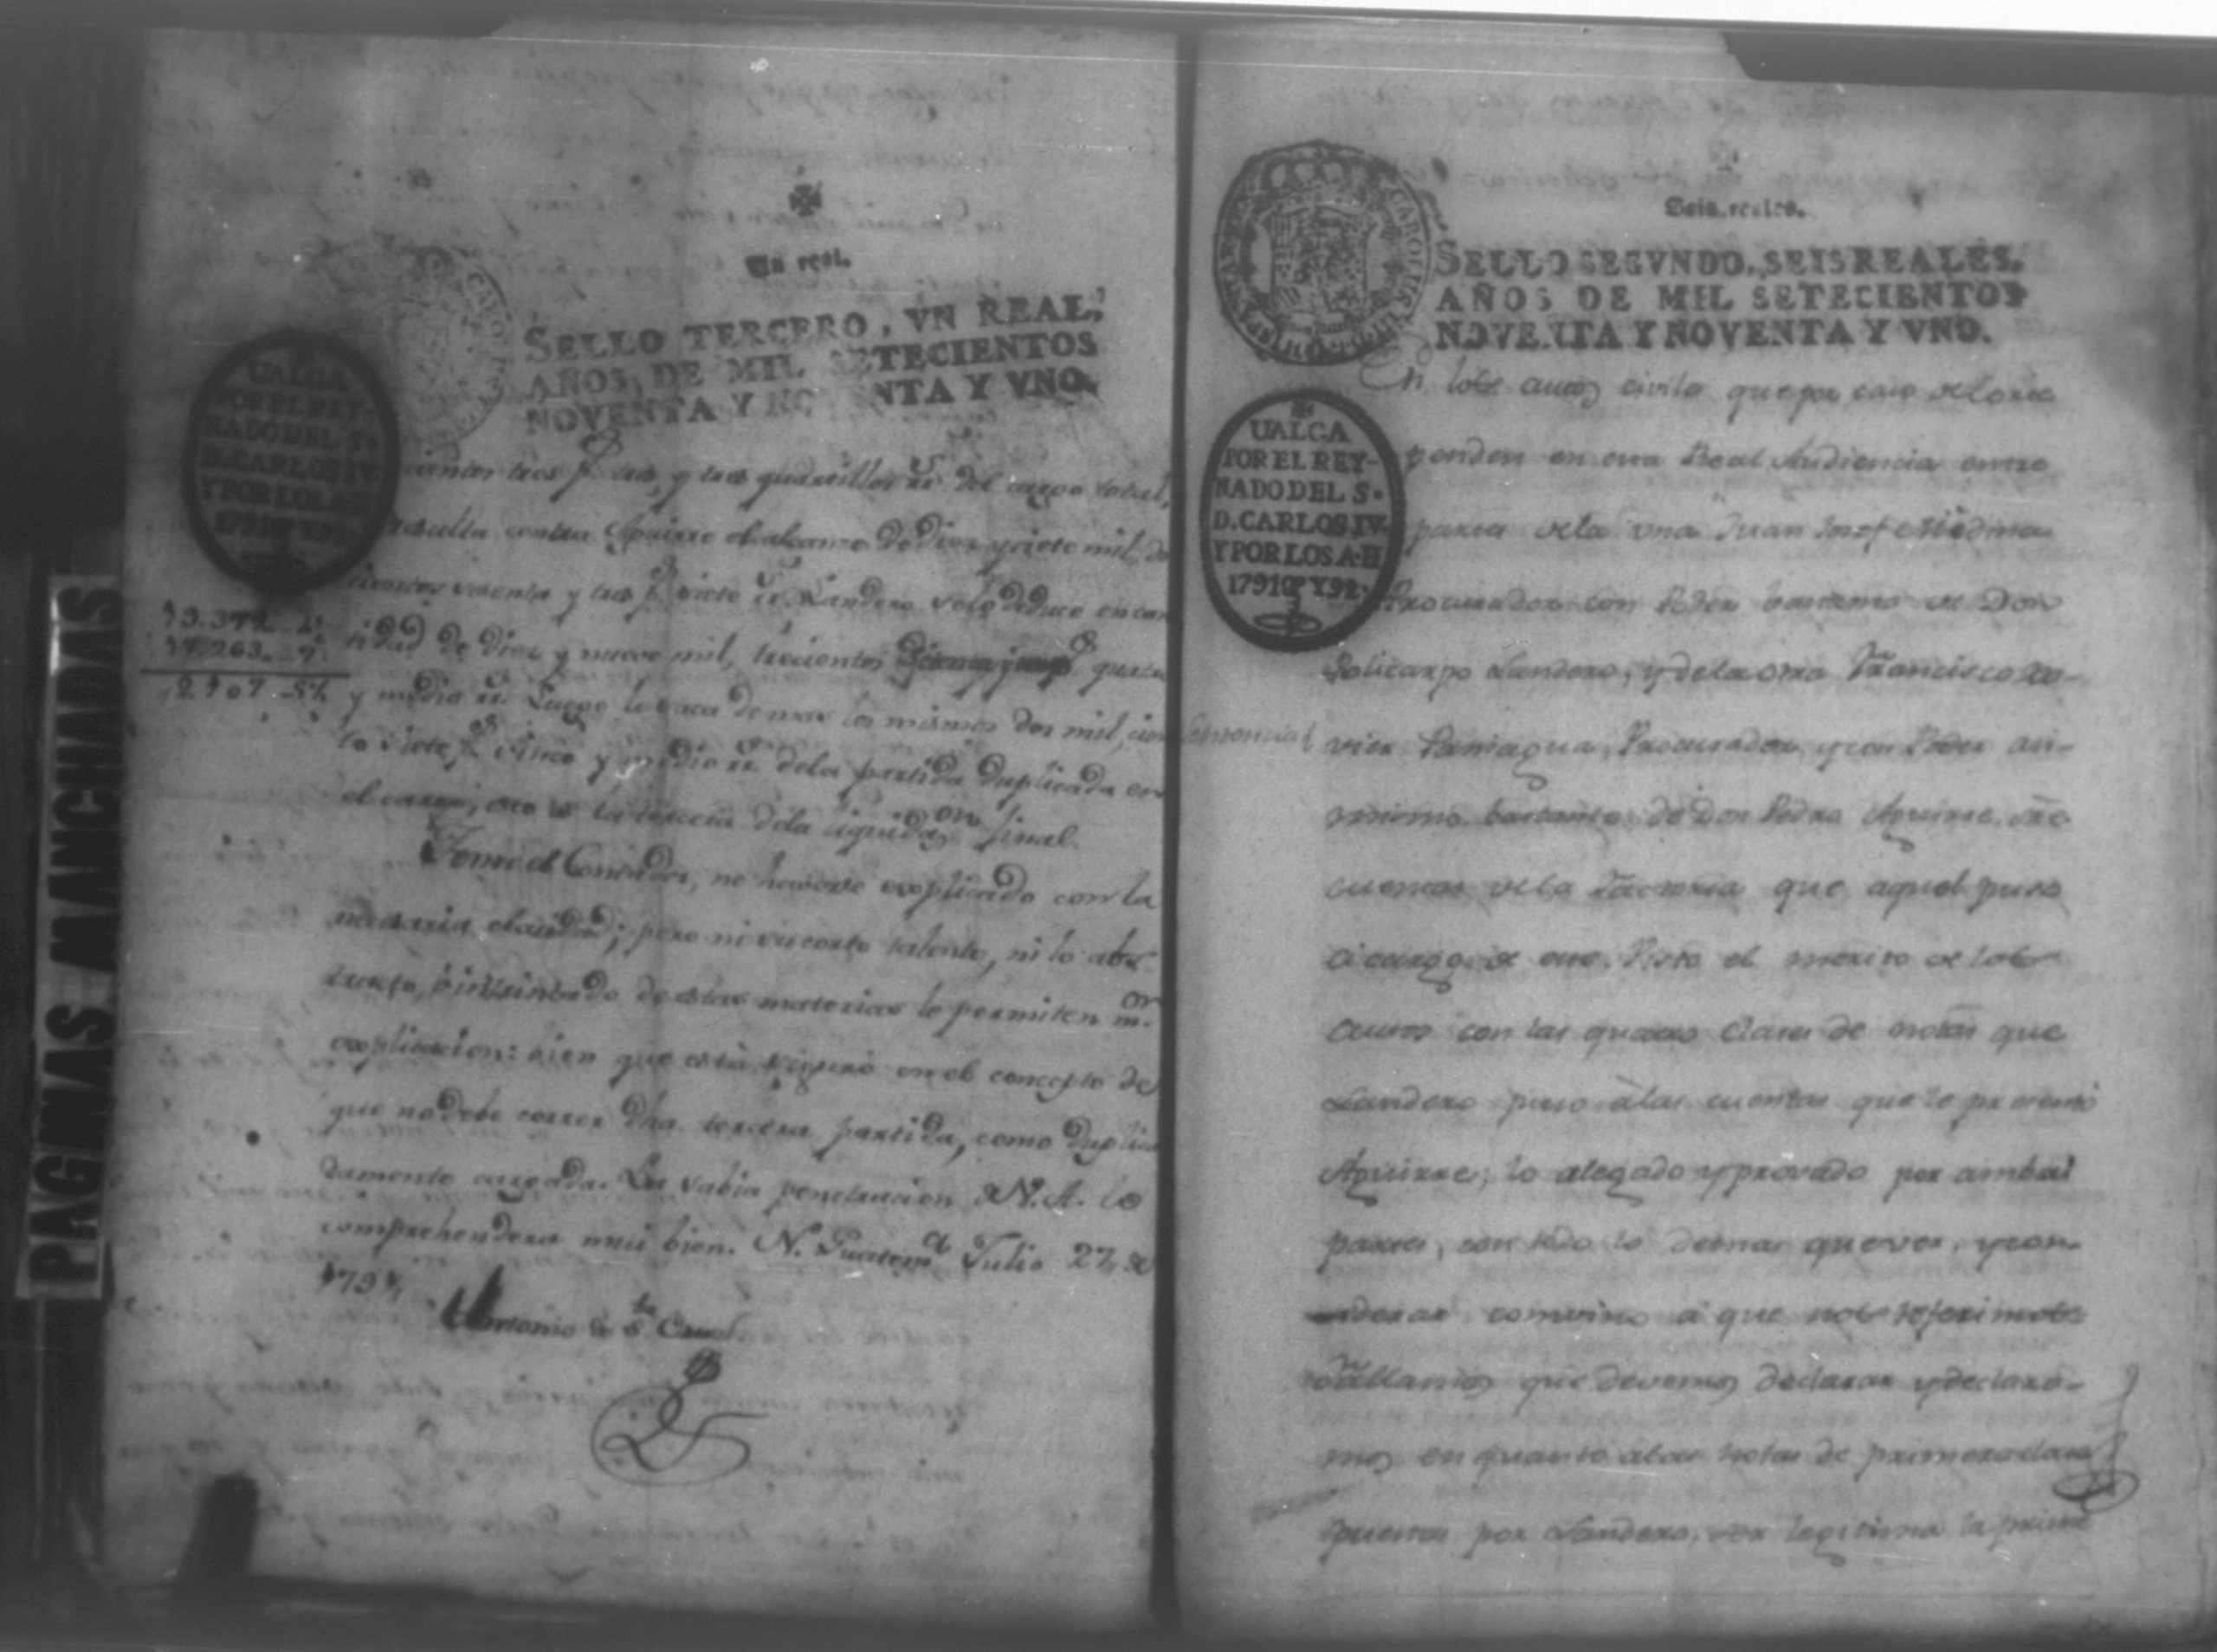 PAGINAS MANCHADAS
Un real.
SELLO TERCERO, VN REAL,
AÑOS DE MIL SETECIENTOS
NOVENTA Y NOVENTA Y VNO.
UALGA
POR EL REY-
NADO DEL S.
D. CARLOS IV
Y POR LOS A.
1791 Y 92.
cientos tres p.s tres, y tres quartillos rr.s del cargo total,
resulta contra Aguirre el alcance de diez y siete mil, do
cientos sesenta y tres p.s siete rr.s Landero solo deduce en can
tidad de diez y nueve mil, trecientos p.s quatro
y media rr.s Luego le saca demas los mismos dos mil, cien
to siete p.s cinco y medio rr.s dela partida duplicada en
el cargo, esto es la tercera dela liquidaz.on final.
17.263..7
2107..5½
Teme el Contador, no haverse explicado con la
necesaria claridad; pero ni su corto talento, ni lo abs
tracto, è intrincado de estas materias le permiten m.or
explicacion: bien que està seguro en el concepto de
que no debe correr dha. tercera partida, como duplica
damente cargada. La sabia penetracion lo
comprehenderà mui bien. N. Guatem.a Julio 27, de
1791,
Antonio de S.ta Cruz
Seis reales.
SELLO SEGVNDO, SEIS REALES,
AÑOS DE MIL SETECIENTOS
NOVENTA Y NOVENTA Y VNO.
CAROLUS
UALGA
POR EL REY-
NADO DEL S.
D. CARLOS IV
Y POR LOS A.
1791 Y 92.
En los autos civiles que por caso de Corte
penden en esta Real Audiencia entre
partes dela una Juan Josef Medina
Procurador con Poder bastante de Don
Policarpo Landero, y dela otra Francisco Xa-
Sentencia
vier Paniagua, Procurador, y con Poder asi-
mismo bastante de Don Pedro Aguirre, sre
cuentas dela Factoria que aquel puso
à cargo de este. Visto el merito de los
autos con las quatro clases de notas que
Landero puso à las cuentas que le presentó
Aguirre; lo alegado y provado por ambas
partes, con todo lo demas que ver, y con-
siderar convino à que nos referimos
Fallamos que devemos declarar y declara-
mos en quanto à las notas de primera clase
puestas por Landero, ser legitima la prime